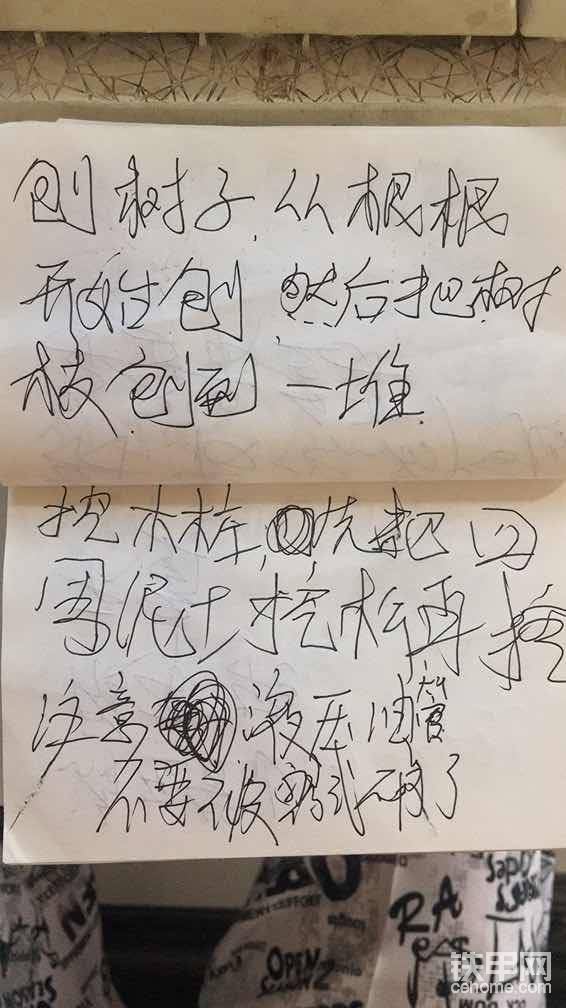 刨树子,从根根
开始刨 然后把树
枝刨到一堆.
挖木桩,先把四
周泥土挖松再挖
注意 液压油管
不要被 了
OPEN
RA
铁甲网
cehome.com